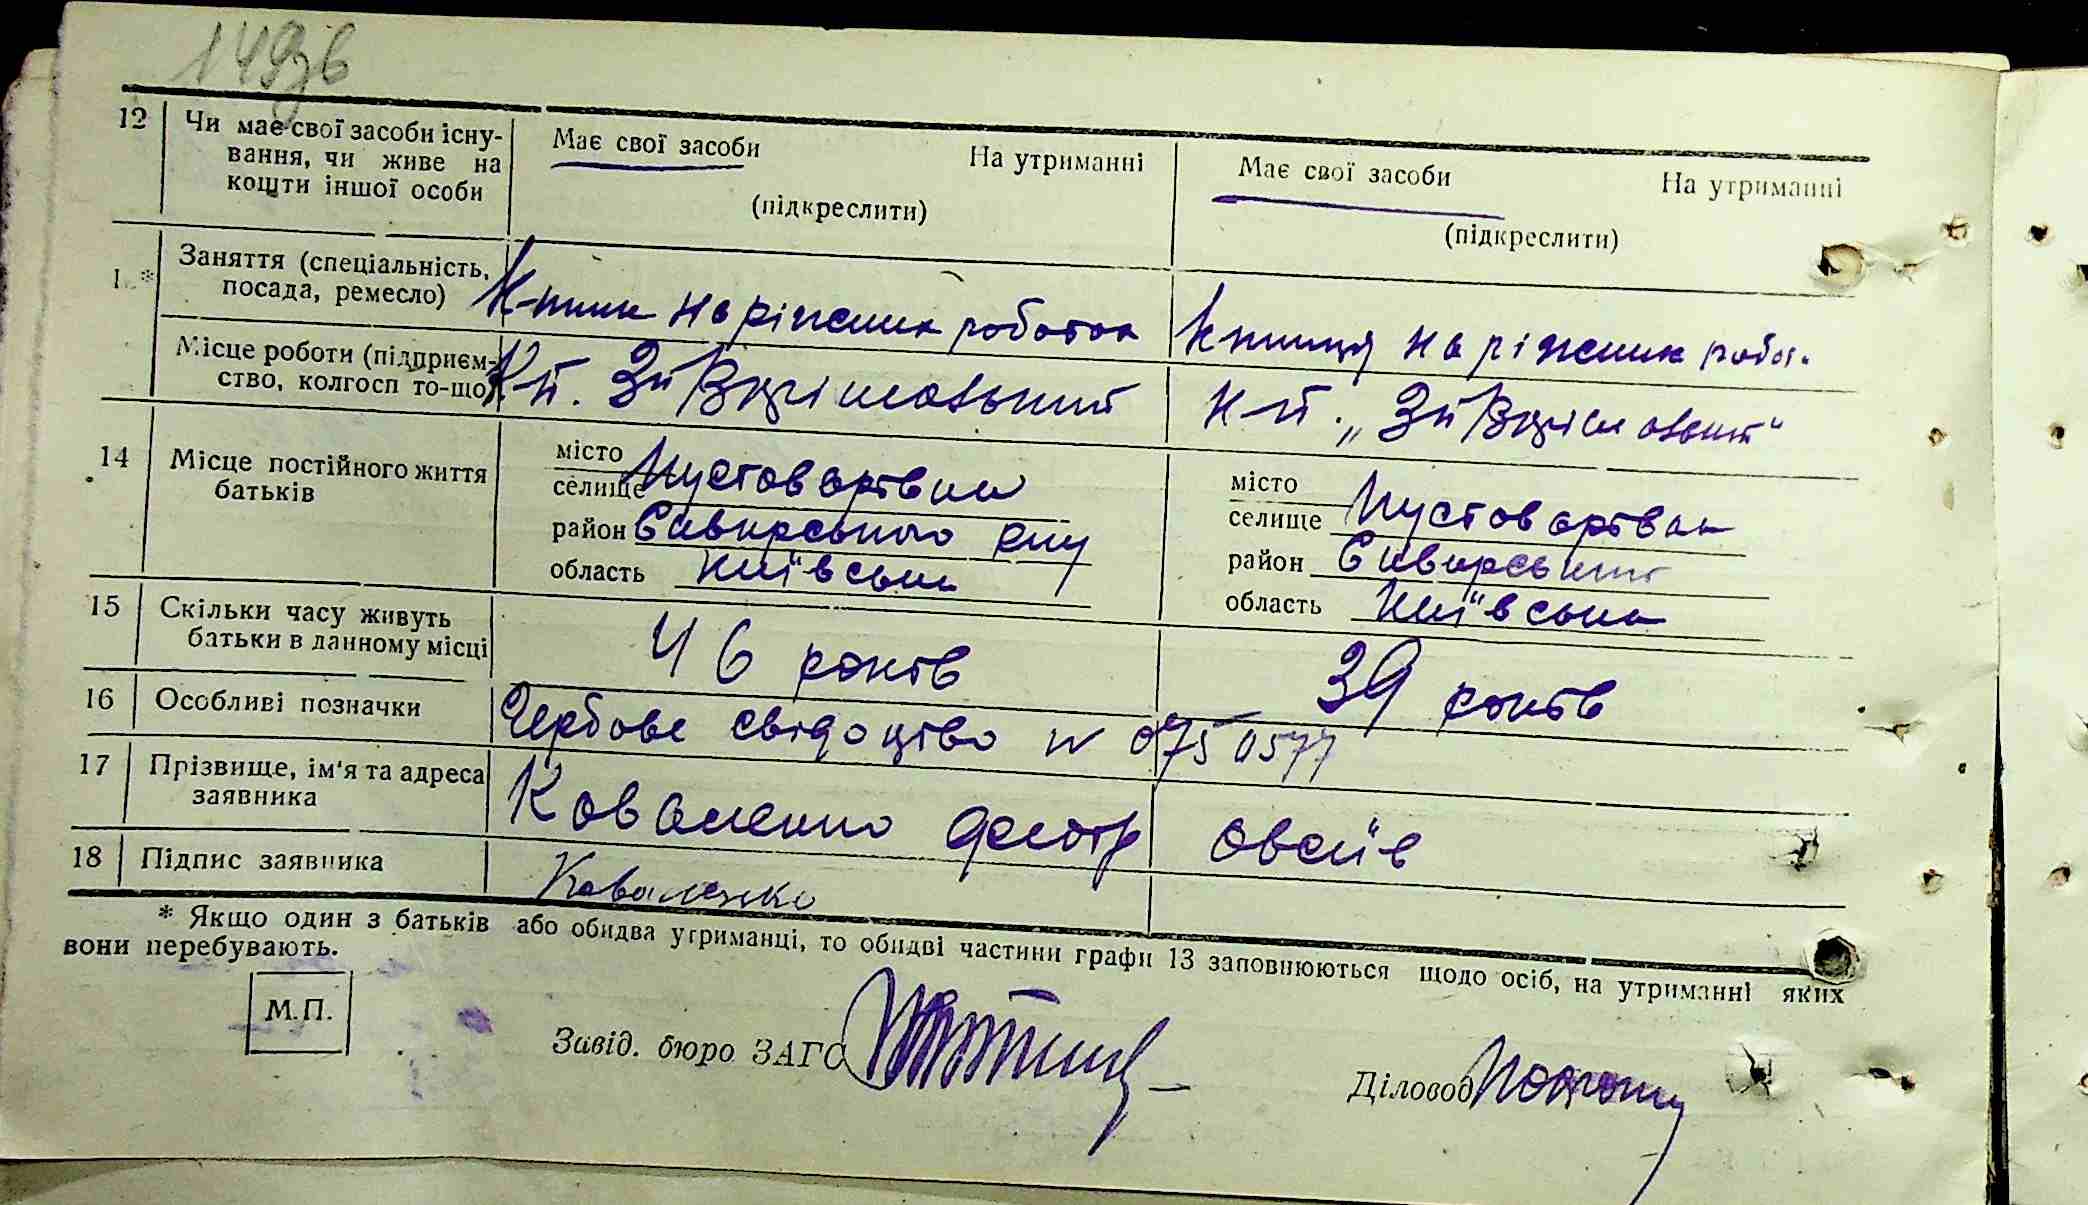 149зв
12 Чи має свої засоби існу-
вання, чи живе на
кошти іншої особи
Має свої засоби На утриманні
(підкреслити)
Має свої засоби На утриманні
(підкреслити)
Заняття (спеціальність,
посада, ремесло)
К-ник на ріжених роботах
К-ниця на ріжених робот.
Місце роботи (підприєм-
ство, колгосп то-що)
К-п.
к-п.
14 Місце постійного життя
батьків
місто
селище Пустоварівка
район Сквирського р-ну
область Київська
місто
селище Пустоварівка
район Сквирський
область Київська
15 Скільки часу живуть
батьки в данному місці
46 років
39 років
16 Особливі позначки
Гербове свідоцтво N 0750577
17 Прізвище, ім'я та адреса
заявника
Коваленко Овсіїв
18 Підпис заявника
Коваленко
* Якщо один з батьків або обидва утриманці, то обидві частини графи 13 заповнюються щодо осіб, на утриманні яких
вони перебувають.
М.П.
Завід. бюро ЗАГС
Діловод